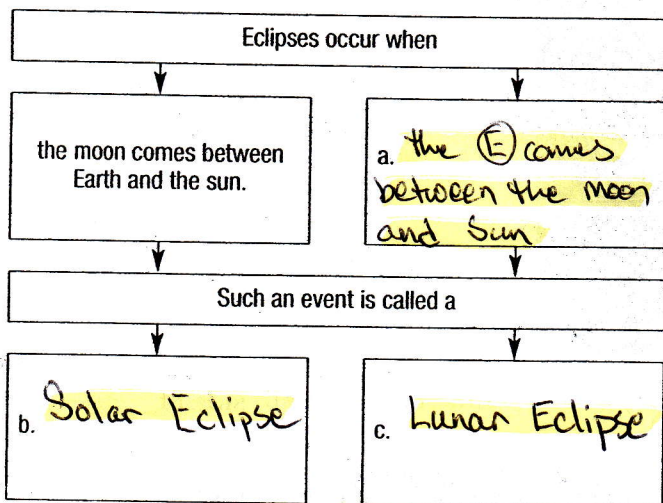 Eclipses occur when
the moon comes between
Earth and the sun.
a. the E comes
between the moon
and Sun
Such an event is called a
b. Solar Eclipse
c. Lunar Eclipse